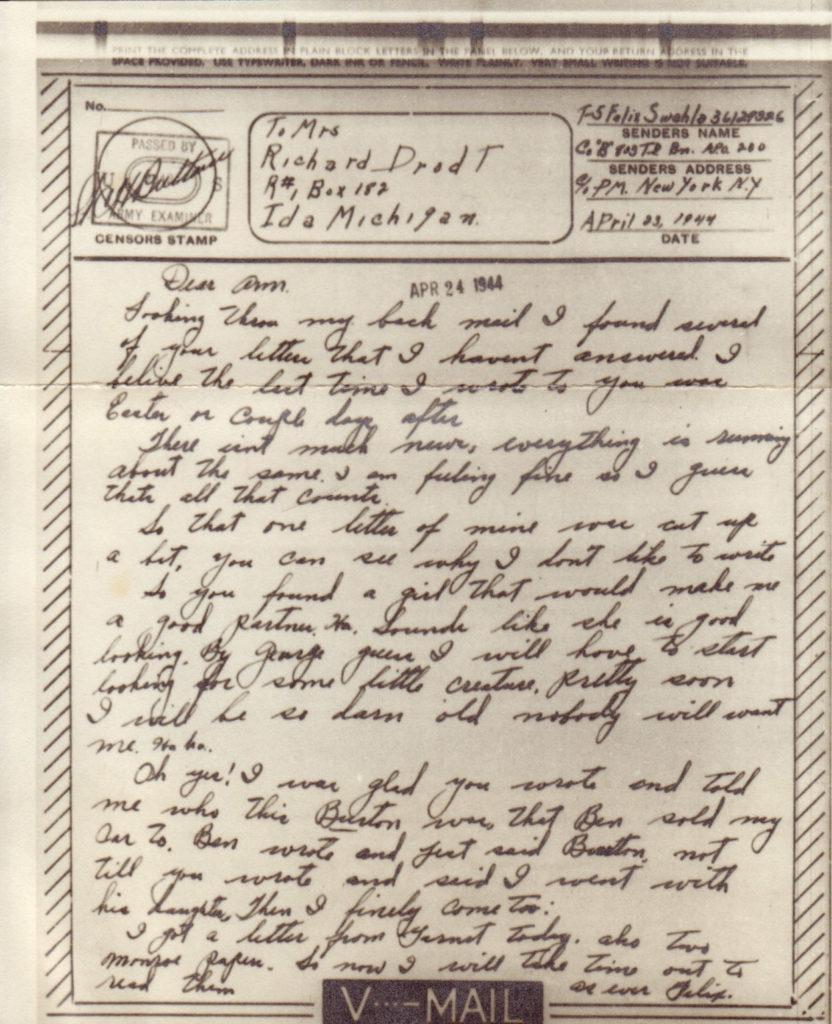 PRINT THE COMPLETE ADDRESS IN PLAIN BLOCK LETTERS IN THE PANEL BELOW, AND YOUR RETURN ADDRESS IN THE
SPACE PROVIDED. USE TYPEWRITER, DARK INK OR PENCIL. WRITE PLAINLY. VERY SMALL WRITING IS NOT SUITABLE.
No.
PASSED BY
U S
ARMY EXAMINER
CENSORS STAMP
To Mrs
Richard Drodt
R#1, Box 182
Ida Michigan.
T-5 Felix Swahla 36129326
SENDERS NAME
Co "B" 803 T.D. Bn. APO. 200
SENDERS ADDRESS
c/o P.M. New York N.Y
April 23, 1944
DATE
Dear Ann.
APR 24 1944
Looking throu my back mail I found several
of your letters that I havent answered. I
belive the last time I wrote to you was
Easter or couple days after
There isnt much news, everything is running
about the same. I am feeling fine so I guess
thats all that counts.
So that one letter of mine was cut up
a bit, you can see why I don't like to write
So you found a girl that would make me
a good partner. Ha. Sounds like she is good
looking. By George guess I will have to start
looking for some little creature. Pretty soon
I will be so darn old nobody will want
me. Ha ha.
Oh yes! I was glad you wrote and told
me who this Burton was, that Ben sold my
car to. Ben wrote and just said Burton, not
till you wrote and said I went with
his daughter, Then I finely come too:
I got a letter from today. also two
Monroe papers. So now I will take time out to
read them as ever Felix.
V···—MAIL